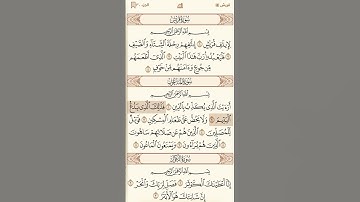 سُورَةُ قُرَيْشٍ
بِسْمِ ٱللَّهِ ٱلرَّحْمَٰنِ ٱلرَّحِيمِ
لِإِيلَٰفِ قُرَيْشٍ ۝١ إِۦلَٰفِهِمْ رِحْلَةَ ٱلشِّتَآءِ وَٱلصَّيْفِ
۝٢ فَلْيَعْبُدُوا۟ رَبَّ هَٰذَا ٱلْبَيْتِ ۝٣ ٱلَّذِىٓ أَطْعَمَهُم
مِّن جُوعٍ وَءَامَنَهُم مِّنْ خَوْفٍۭ ۝٤
سُورَةُ المَاعُونِ
بِسْمِ ٱللَّهِ ٱلرَّحْمَٰنِ ٱلرَّحِيمِ
أَرَءَيْتَ ٱلَّذِى يُكَذِّبُ بِٱلدِّينِ ۝١ فَذَٰلِكَ ٱلَّذِى يَدُعُّ
ٱلْيَتِيمَ ۝٢ وَلَا يَحُضُّ عَلَىٰ طَعَامِ ٱلْمِسْكِينِ ۝٣ فَوَيْلٌ
لِّلْمُصَلِّينَ ۝٤ ٱلَّذِينَ هُمْ عَن صَلَاتِهِمْ سَاهُونَ
۝٥ ٱلَّذِينَ هُمْ يُرَآءُونَ ۝٦ وَيَمْنَعُونَ ٱلْمَاعُونَ ۝٧
سُورَةُ الكَوْثَرِ
بِسْمِ ٱللَّهِ ٱلرَّحْمَٰنِ ٱلرَّحِيمِ
إِنَّآ أَعْطَيْنَٰكَ ٱلْكَوْثَرَ ۝١ فَصَلِّ لِرَبِّكَ وَٱنْحَرْ ۝٢
إِنَّ شَانِئَكَ هُوَ ٱلْأَبْتَرُ ۝٣